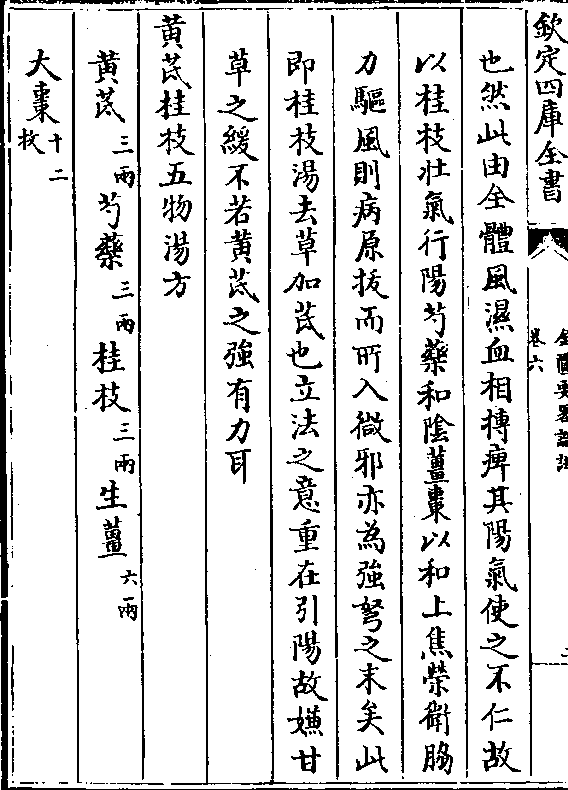 欽定四庫全書
卷六
也然此由全體風濕血相摶痺其陽氣使之不仁故
以桂枝壯氣行陽芍藥和陰薑棗以和上焦榮衛脇
力驅風則病原拔而所入微邪亦為強弩之末矣此
即桂枝湯去草加芪也立法之意重在引陽故嫌甘
草之緩不若黃芪之強有力耳
黃芪桂枝五物湯方
黃芪三兩 芍藥三兩 桂枝三兩 生薑六兩
大棗十二枚